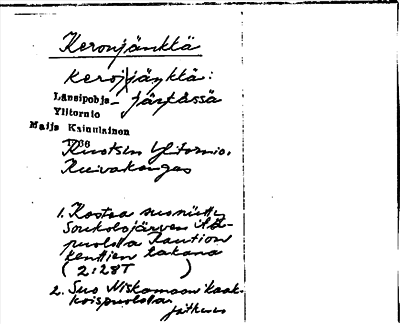 Keronjänkkä
kerojjäŋkkä:
Länsipohja- jäŋkässä
Ylitornio
Maija Kainulainen
Ruotsin Ylitornio.
Kuivakangas
1. Kostea suoniitty
Soukolojärven itä-
puolella Raution
kenttien takana
(2:28T )
2. Suo Niskamaan kaak-
koispuolella
jatkuu